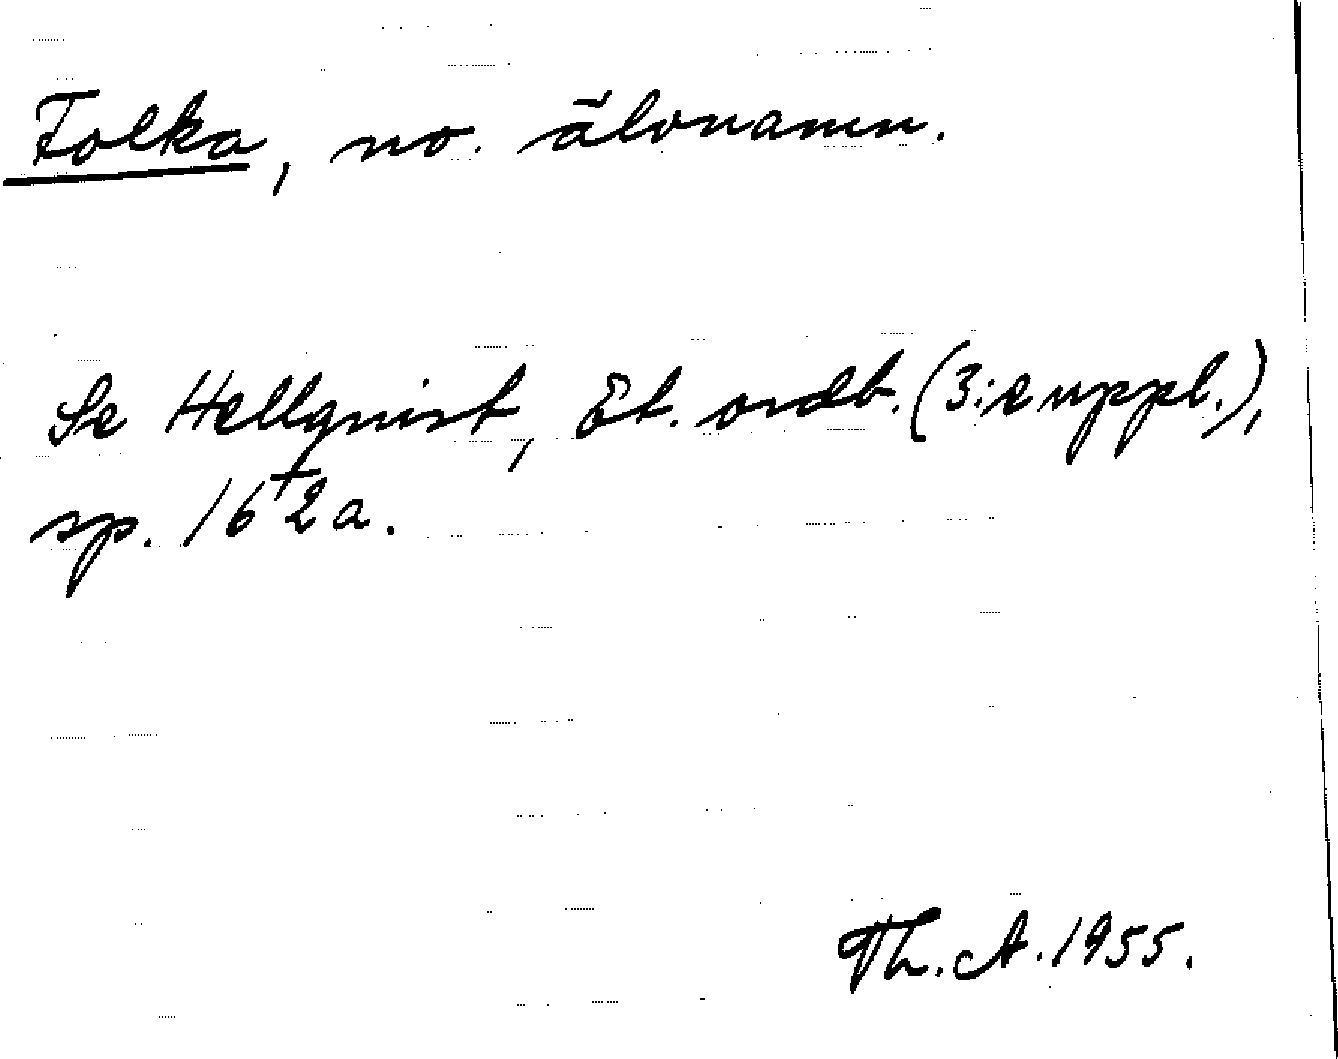 Folka, no. älvnamn.
Se Hellquist, Et. ordb. (3:e uppl.),
sp. 162a.
Th. A. 1955.